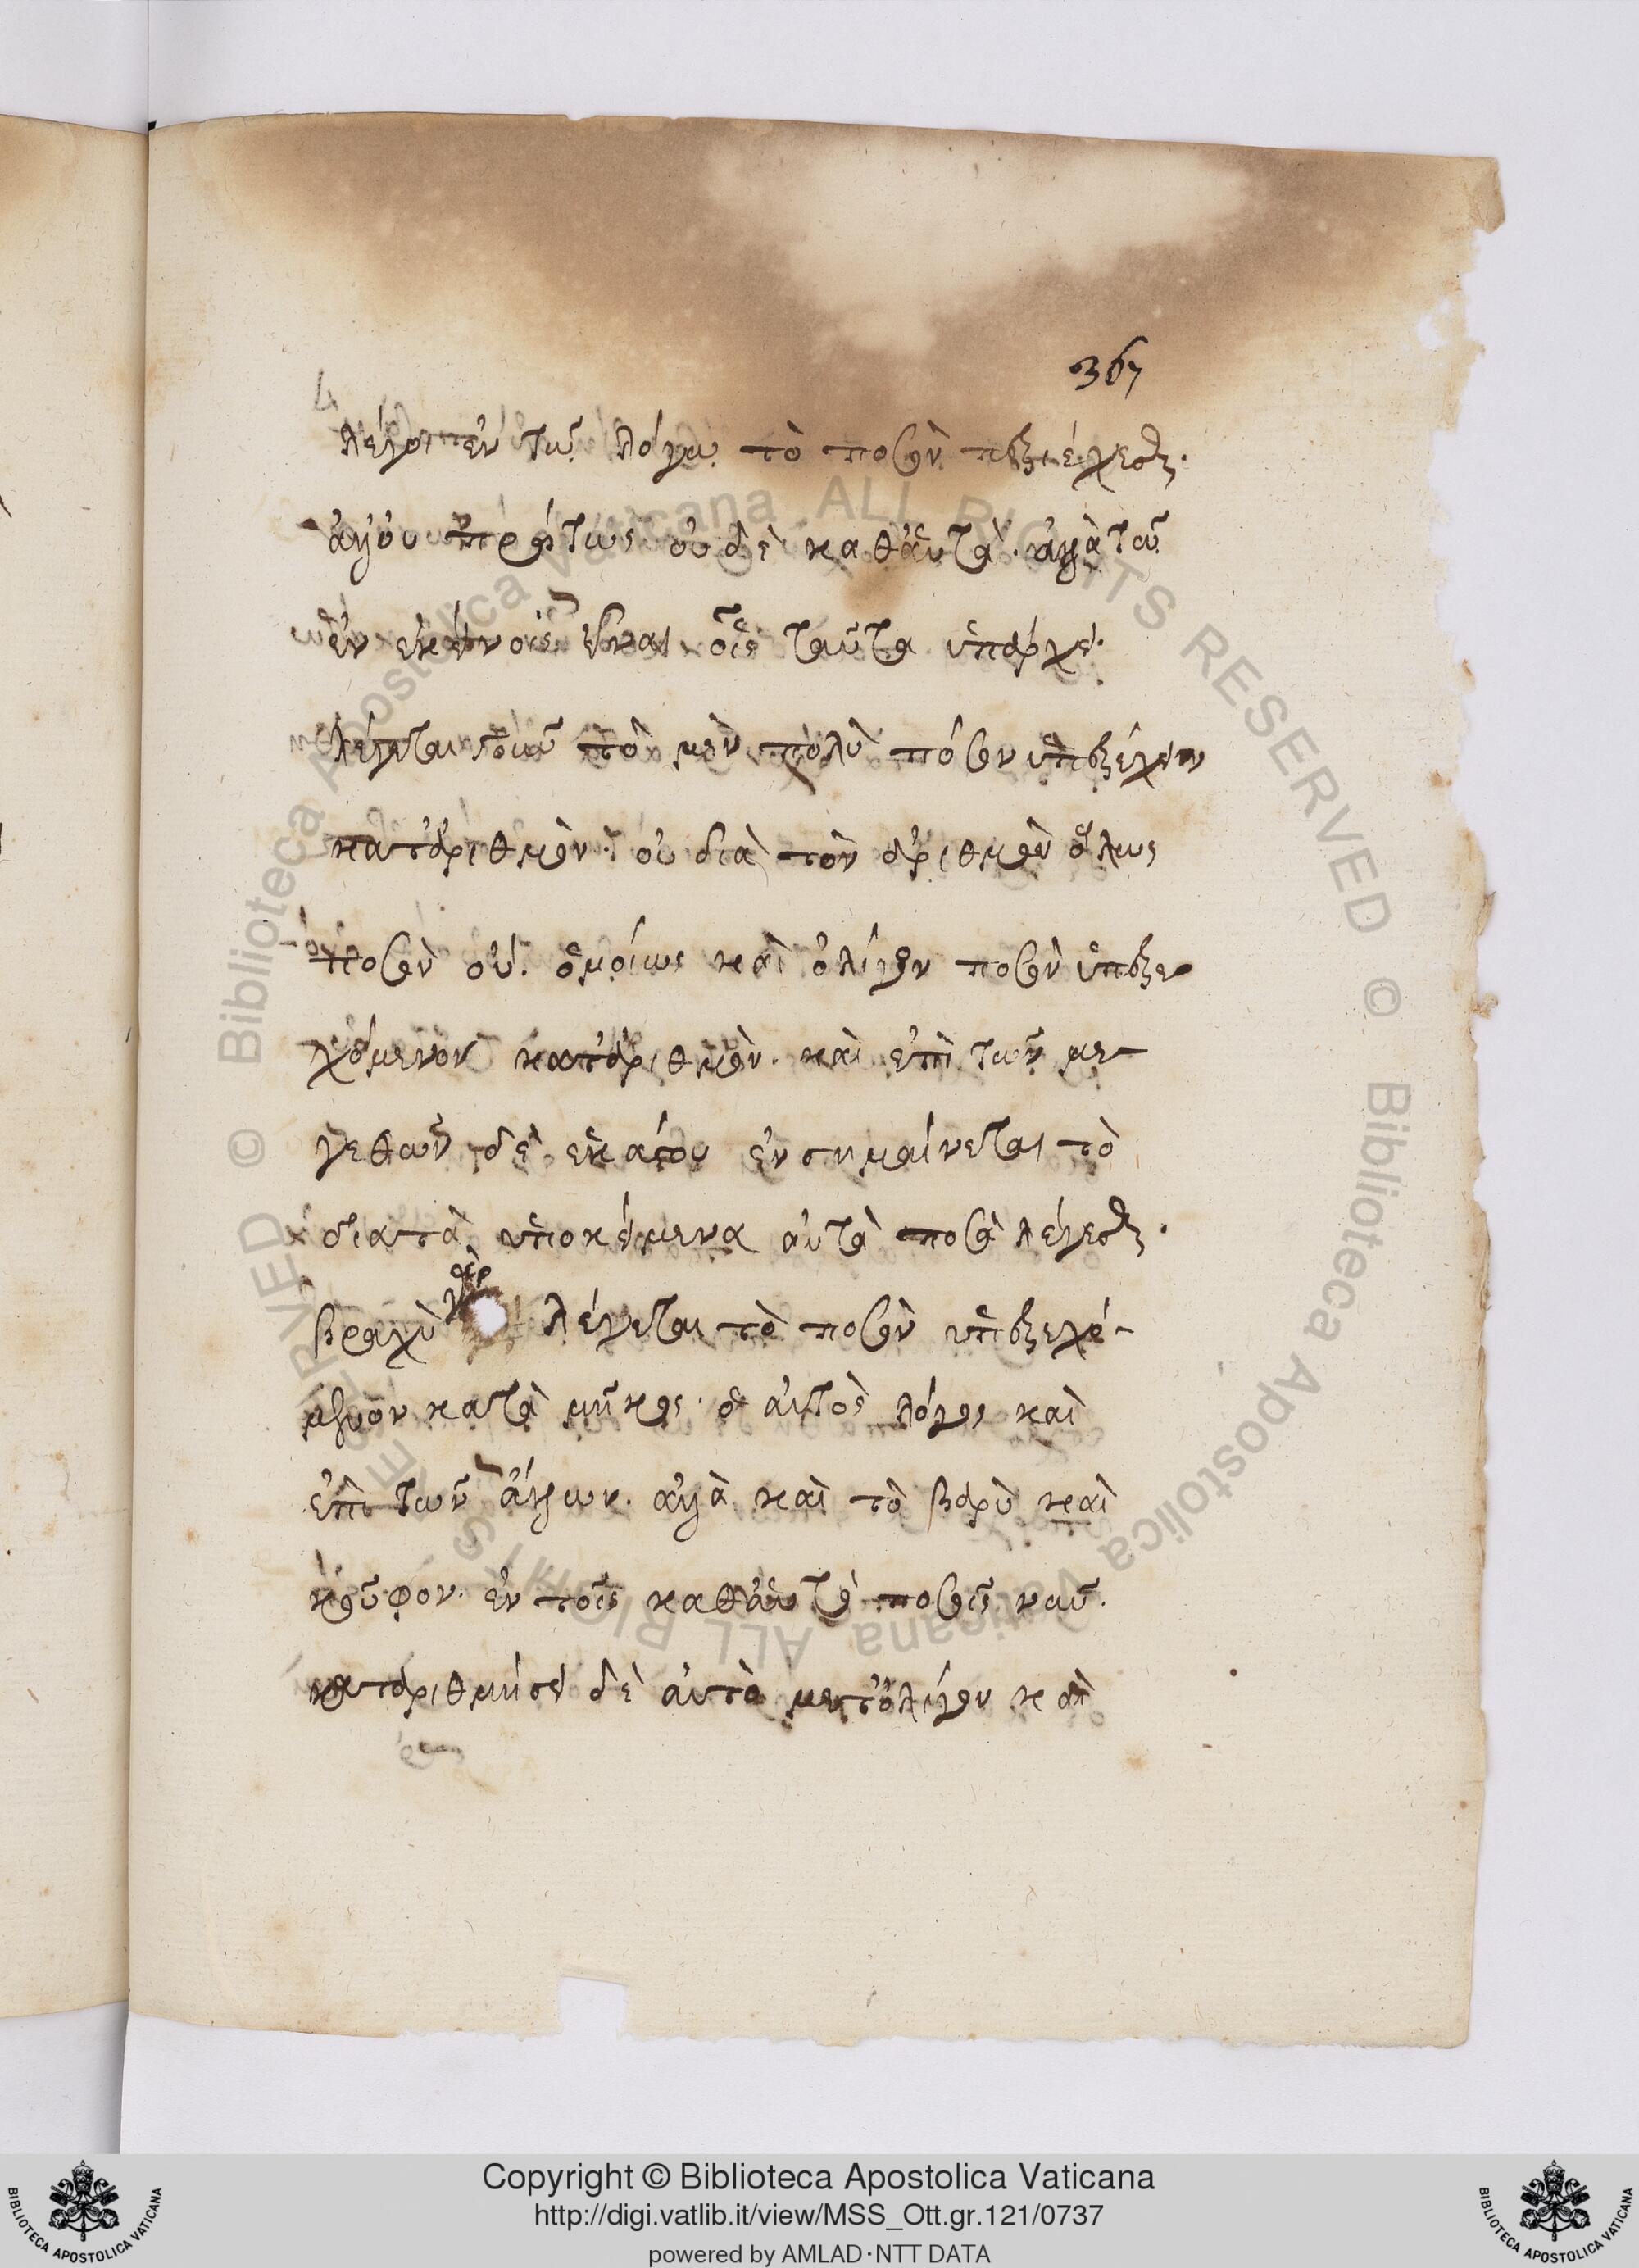 367
λέγοι ἐν τῶ λόγω τὸ ποσὸν περιέχεσθαι.
ἀλλ' οὐ πρώτως οὐδὲ καθ' αὑτὰ. ἀλλὰ τῶ
ἐν ἐκείνοις εἶναι οἷς ταῦτα ὑπάρχει.
λέγεται τὸ μὲν πολὺ πόσον ὑπερέχον
κατ' ἀριθμὸν. οὐ διὰ τὸν ἀριθμὸν ὅλως
ποσὸν οὐ. ὁμοίως καὶ ὀλίγον ποσὸν ὑπερε
χόμενον κατ' ἀριθμὸν. καὶ ἐπὶ τῶν με-
γεθῶν δὲ ἑκάστου ἐνσημαίνεται τὸ
διὰ τὰ ὑποκείμενα αὐτὰ ποσὰ λέγεσθαι.
βραχὺ γὰρ λέγεται τὸ ποσὸν ὑπερεχό-
μενον κατὰ μῆκος. ὁ αὐτὸς λόγος καὶ
ἐπὶ τῶν ἄλλων. ἀλλὰ καὶ τὸ βαρὺ καὶ
κοῦφον. ἐν τοῖς καθ' αὑτὸ ποσοῖς
κατ' ἀριθμήσει δὲ αὐτὸ μετ' ὀλίγον καὶ
Copyright © Biblioteca Apostolica Vaticana
http://digi.vatlib.it/view/MSS_Ott.gr.121/0737
powered by AMLAD·NTT DATA
BIBLIOTECA APOSTOLICA VATICANA
BIBLIOTECA APOSTOLICA VATICANA
© Biblioteca Apostolica Vaticana ALL RIGHTS RESERVED © Biblioteca Apostolica Vaticana ALL RIGHTS RESERVED